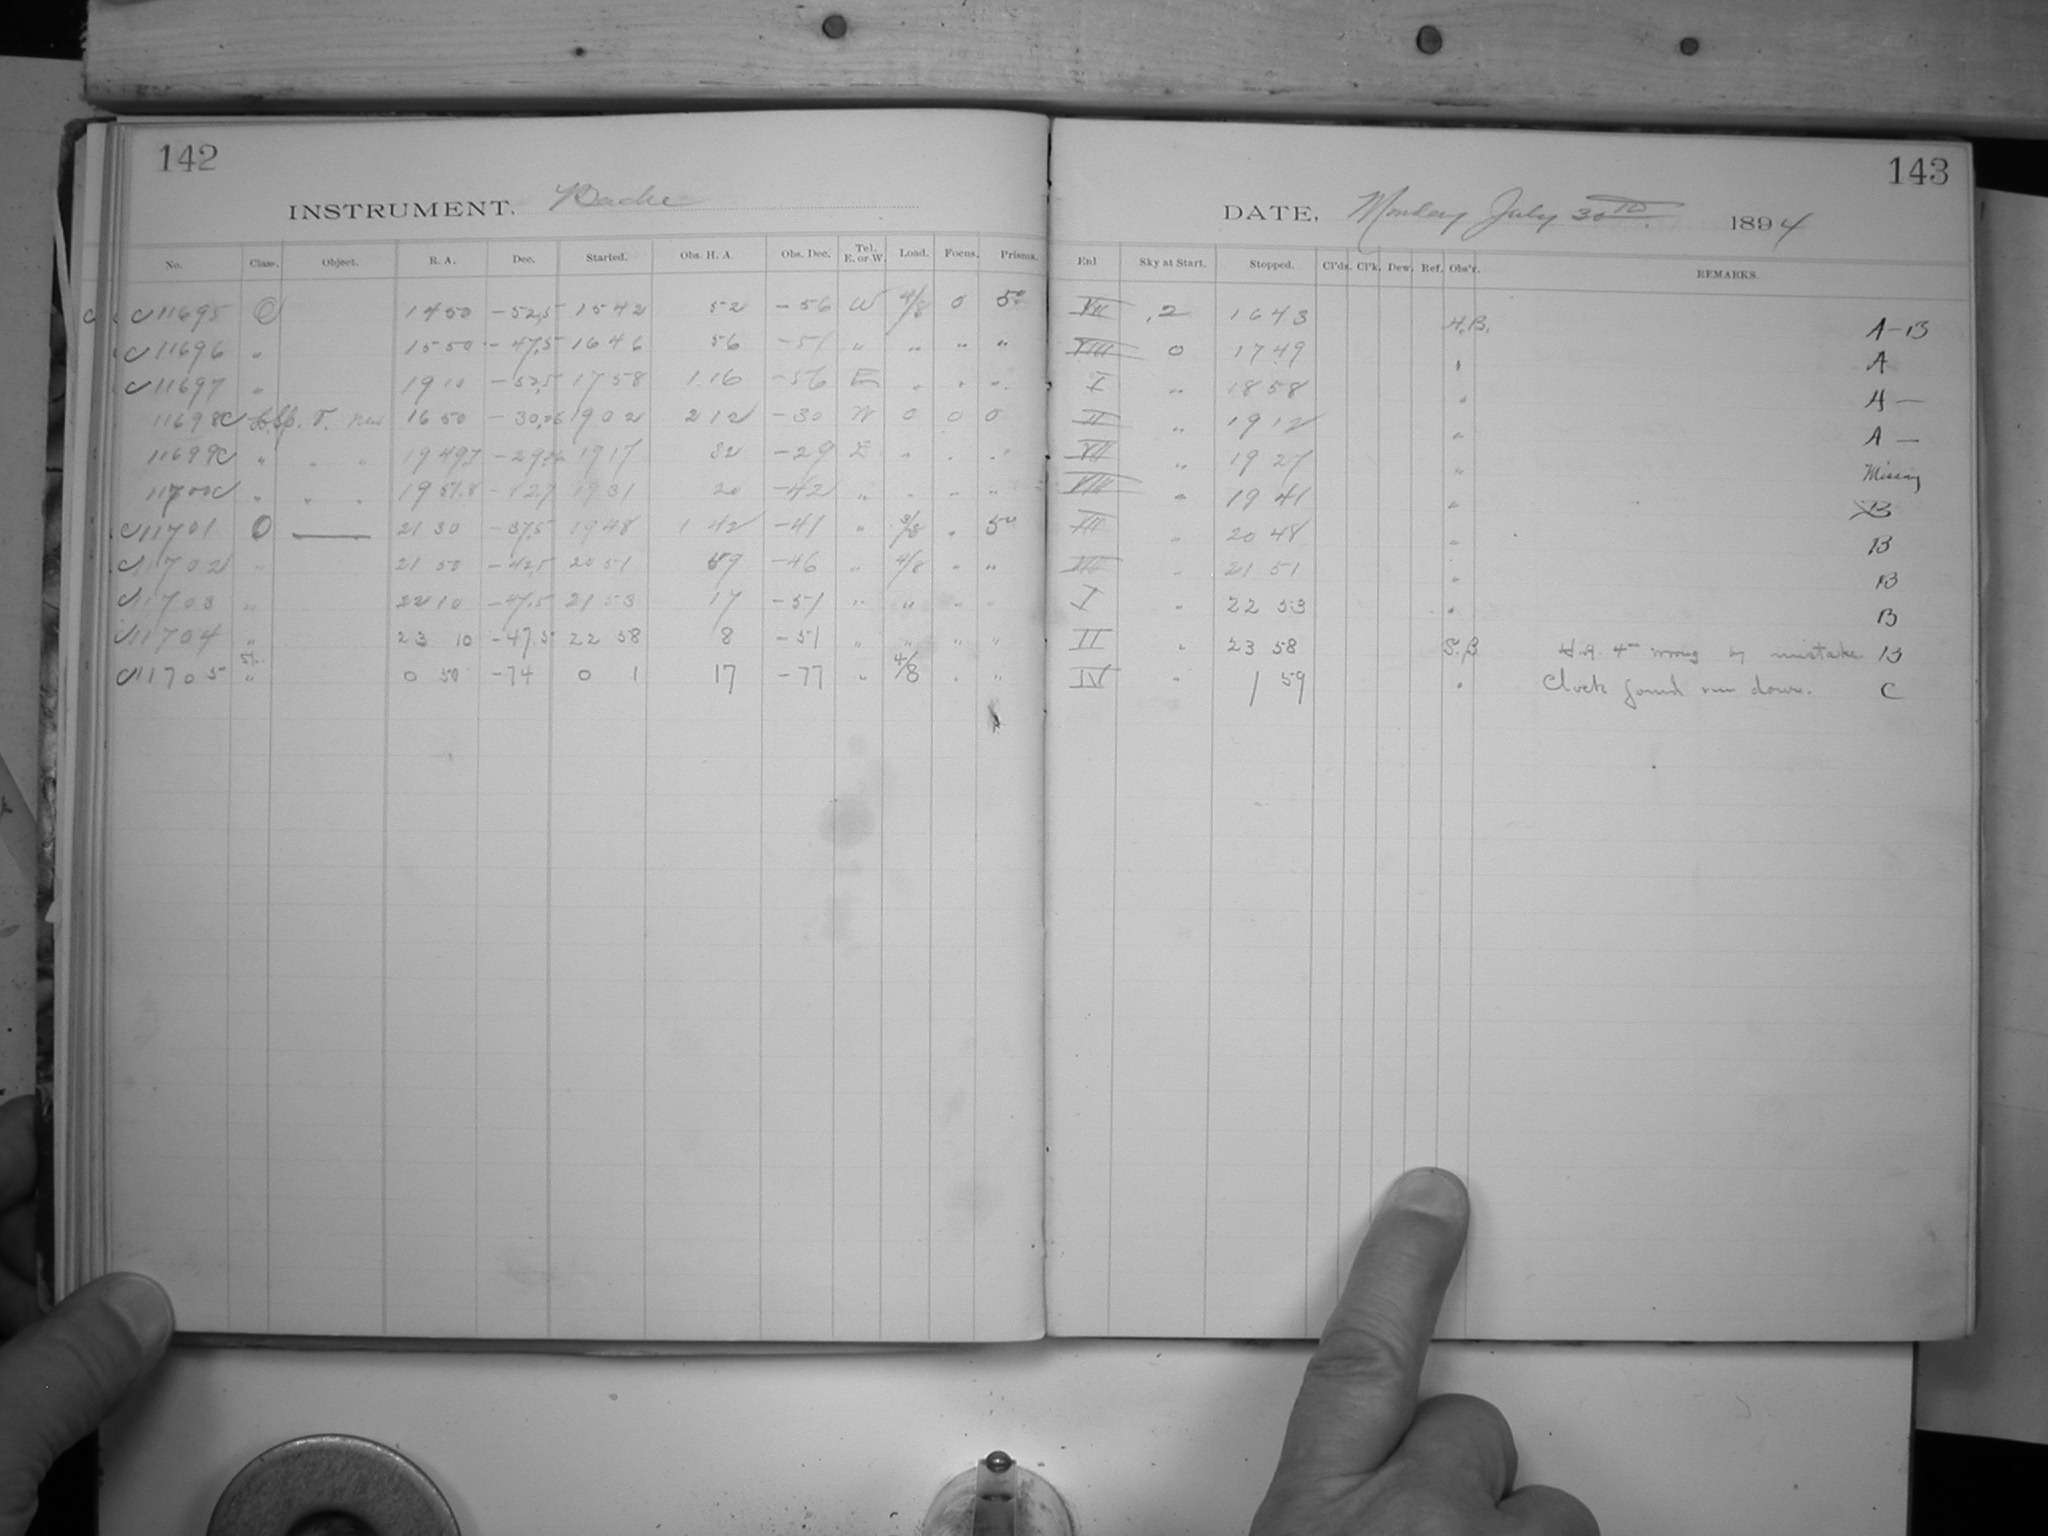 142
INSTRUMENT. Bache
No. Class. Object. R. A. Dec. Started. Obs. H. A. Obs. Dec. Tel. E. or W. Load. Focus. Prisms.
C 11695 C 14 50 -52.5 15 42 52 -56 W 4/8 0 5"
C 11696 " 15 50 -47.5 16 46 56 -51 " " " "
C 11697 " 19 10 -52.5 17 58 1.16 -56 E " " "
11698 C 16 50 19 02 2 12 -30 W 0 0 0
11699 C " " " 19 49.7 19 17 32 -29 E " " "
11700 C " " " 19 51.8 19 31 20 -42 " " " "
C 11701 O 21 30 -37.5 19 48 1 42 -41 " 3/8 " 5"
C 11702 " 21 50 -42.5 20 51 59 -46 " 4/8 " "
C 11703 " 22 10 -47.5 21 53 17 -51 " " " "
C 11704 " 23 10 -47.5 22 58 8 -51 " " " "
C 11705 " 0 50 -74 0 1 17 -77 " 4/8 " "
143
DATE, Monday July 30TH 1894
Enl Sky at Start. Stopped. Cl'ds. Cl'k. Dew. Ref. Obs'r. REMARKS
VII .2 16 43 H.B. A-B
VIII 0 17 49 " A
I " 18 58 " A —
II " 19 12 " A —
VII " 19 27 " Missing
VIII " 19 41 " B
VII " 20 48 " B
VIII " 21 51 " B
I " 22 53 " B
II " 23 58 S.B. H.A. 4m wrong by mistake B
IV " 1 59 " Clock found run down. C